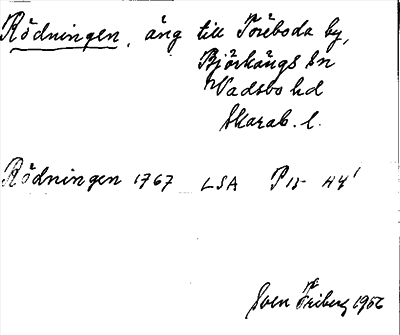 Rödningen, äng till Töreboda by,
Björkängs sn
Wadsbo hd
Skarab. l.
Rödningen 1767 LSA P15- 44¹
Sven Friberg 1956